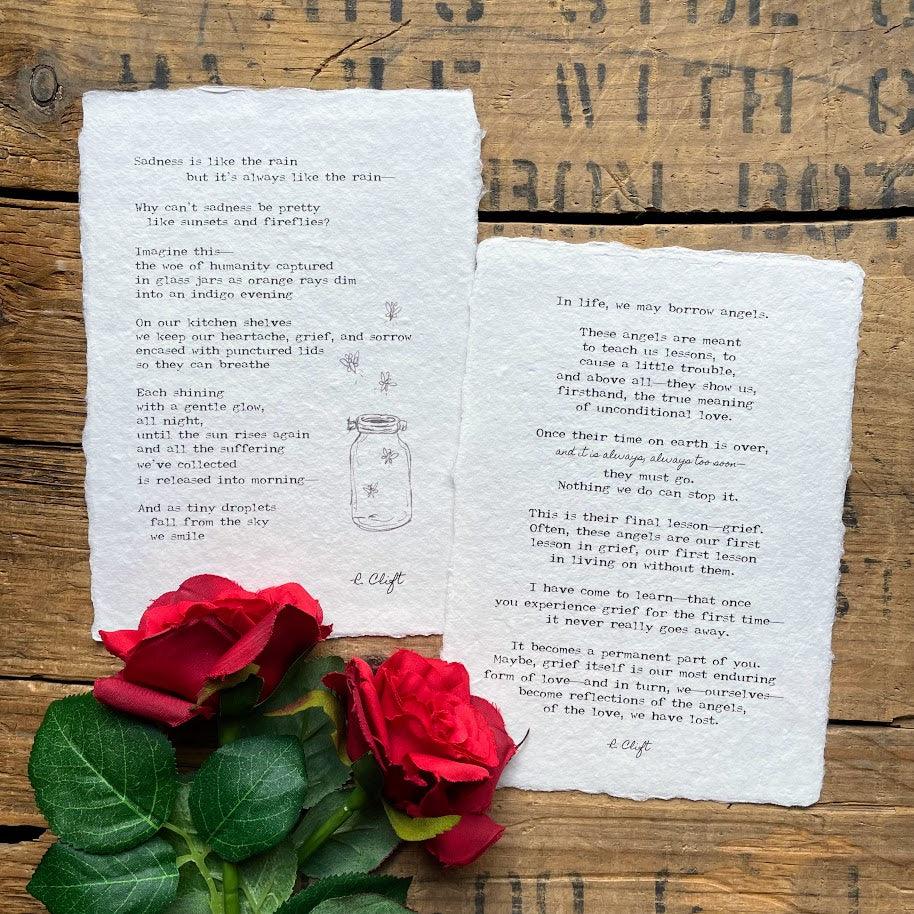 WITH
Sadness is like the rain
but it's always like the rain—
Why can't sadness be pretty
like sunsets and fireflies?
Imagine this—
the woe of humanity captured
in glass jars as orange rays dim
into an indigo evening
On our kitchen shelves
we keep our heartache, grief, and sorrow
encased with punctured lids
so they can breathe
Each shining
with a gentle glow,
all night,
until the sun rises again
and all the suffering
we've collected
is released into morning—
And as tiny droplets
fall from the sky
we smile
R. Clift
In life, we may borrow angels.
These angels are meant
to teach us lessons, to
cause a little trouble,
and above all—they show us,
firsthand, the true meaning
of unconditional love.
Once their time on earth is over,
and it is always, always too soon—
they must go.
Nothing we do can stop it.
This is their final lesson—grief.
Often, these angels are our first
lesson in grief, our first lesson
in living on without them.
I have come to learn—that once
you experience grief for the first time—
it never really goes away.
It becomes a permanent part of you.
Maybe, grief itself is our most enduring
form of love—and in turn, we—ourselves—
become reflections of the angels,
of the love, we have lost.
R. Clift